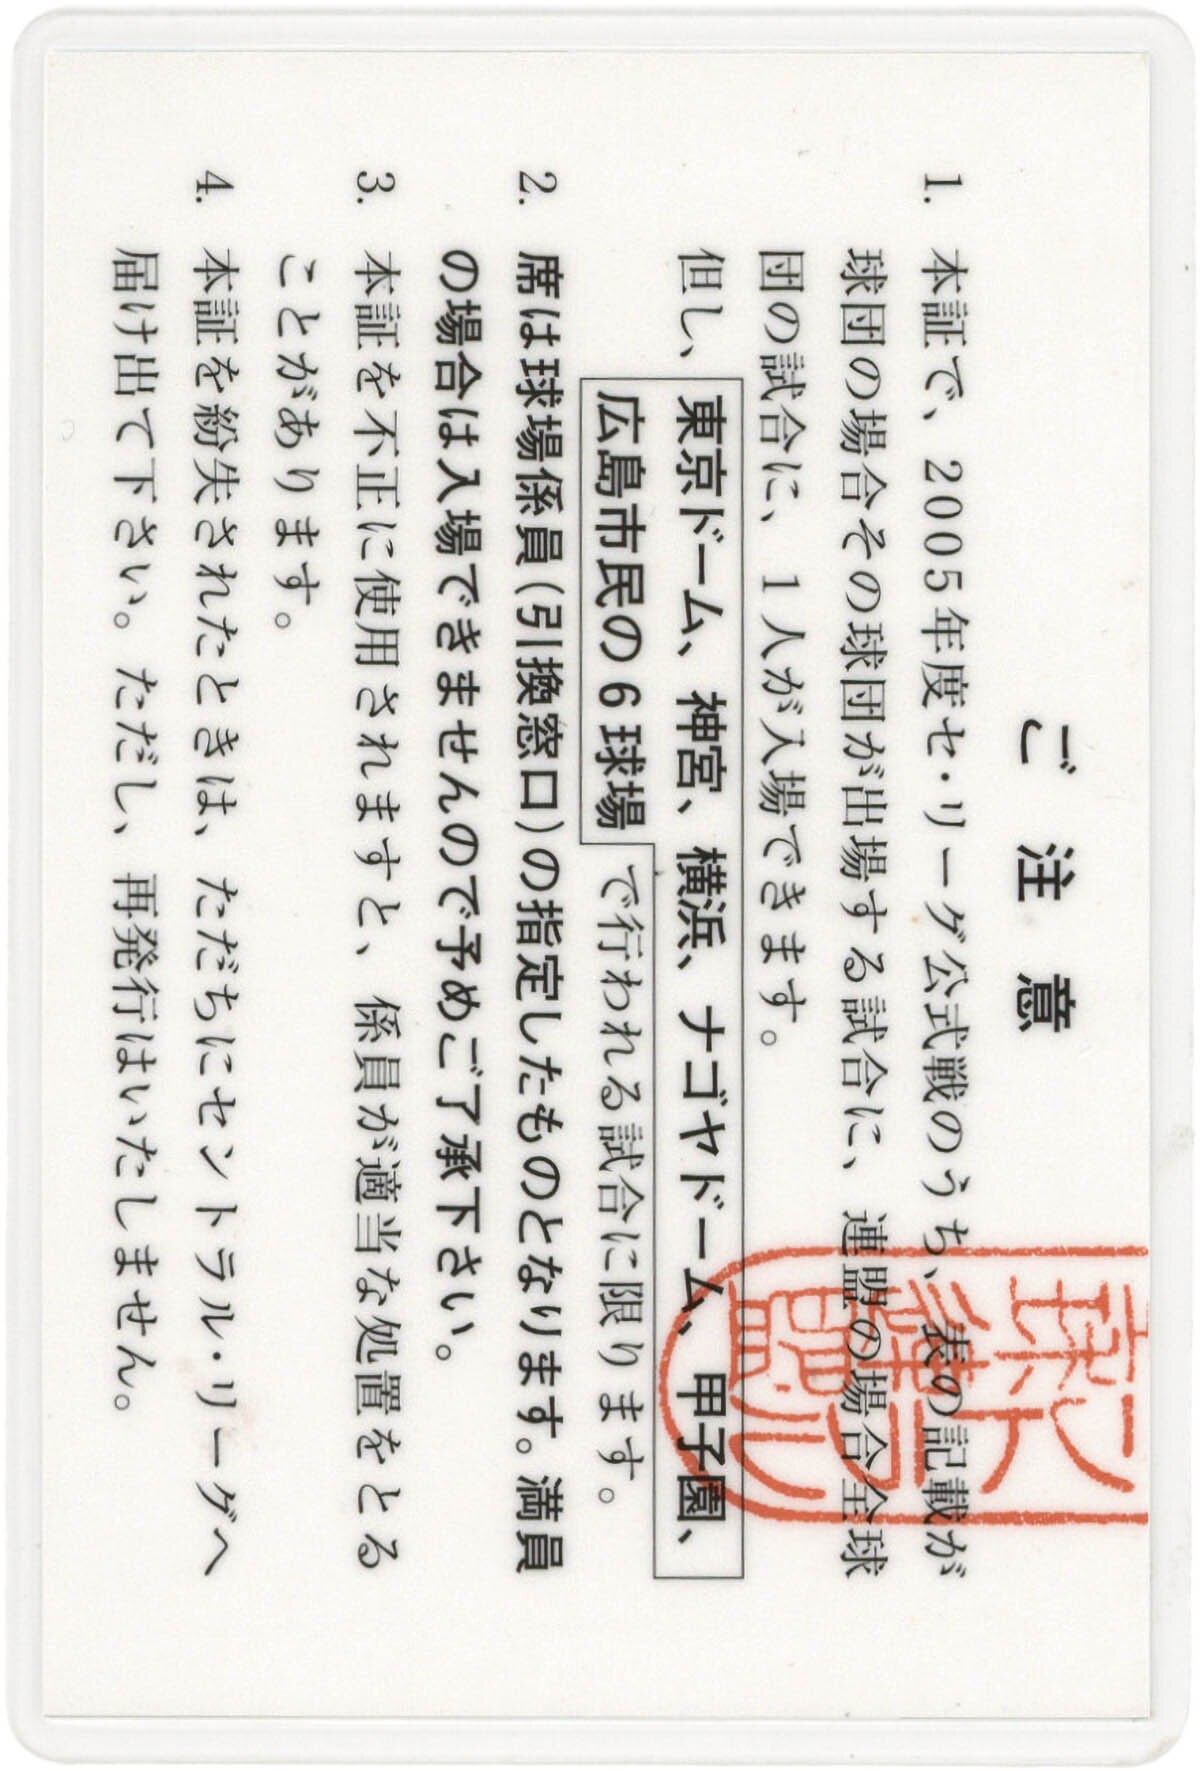 ご注意
1. 本証で、2005年度セ・リーグ公式戦のうち、表の記載が
球団の場合その球団が出場する試合に、連盟の場合全球
団の試合に、1人が入場できます。
但し、東京ドーム、神宮、横浜、ナゴヤドーム、甲子園、
広島市民の6球場で行われる試合に限ります。
2. 席は球場係員(引換窓口)の指定したものとなります。満員
の場合は入場できませんので予めご了承下さい。
3. 本証を不正に使用されますと、係員が適当な処置をとる
ことがあります。
4. 本証を紛失されたときは、ただちにセントラル・リーグへ
届け出て下さい。ただし、再発行はいたしません。